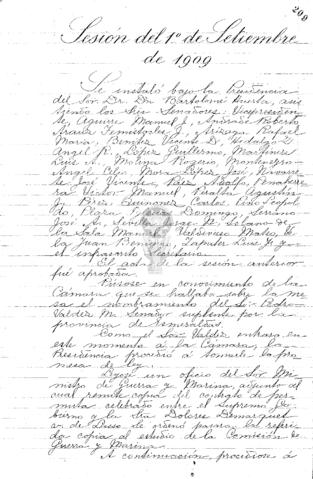 209
Sesión del 1º de Setiembre
de 1909
Se instaló bajo la Presidencia
del Sor. Dr. Dn Bartolomé Huerta, asis
tiendo los Srs. Senadores: Vicepresiden
te, Aguirre Manuel J., Andrade Roberto,
Arauz Temístocles J., Arízaga Rafael
María, Benítez Vicente D., Hidalgo
Angel R., López Guillermo, Manzano
Luis A., Molina Rogerio, Montenegro
Angel Celio, Mora López José, Navarre
te José Vicente, Páez Adolfo, Peñaherre
ra Víctor Manuel, Peralta Agustín
J., Pino, Quiñonez Carlos Otto, Leopol
do, Plaza, Domingo, Serrano
José A., Sevilla
la Sala, Manuel, Valdivieso Mateo, Ve
la Juan Benigno, Zapater Luis F. y
el infrascrito Secretario.
El acta de la sesión anterior
fué aprobada.
Púsose en conocimiento de la
Cámara que se hallaba sobre la me
sa el nombramiento del Sr. Pedro
Valdez M. Senador suplente por la
provincia de Esmeraldas.
Como el Sor. Valdez entrase en
este momento á la Cámara, la
Presidencia procedió á tomarle la pro
mesa de ley.
Leyóse un oficio del Sor. Mi
nistro de Guerra y Marina, adjunto al
cual remite copia del contrato de per
muta celebrado entre el Supremo Go
bierno y la Sra. Dolores Demarquet
v. de Dasso. Se ordenó pasara la referi
da copia al estudio de la Comisión de
Guerra y Marina.
A continuación procedióse á